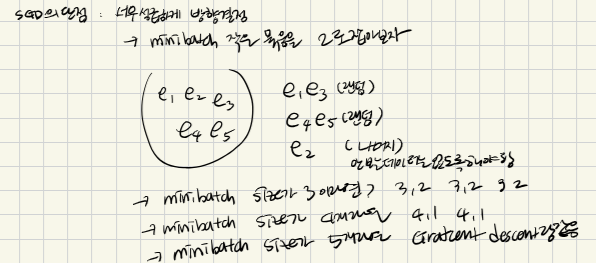 SGD의 단점 : 너무 성급하게 방향결정
→ minibatch 작은 묶음을 2로 잡아보자
e₁ e₂ e₃ e₁e₃ (랜덤)
e₄ e₅ e₄e₅ (랜덤)
e₂ (나머지)
안보는데이터는 없도록해야함
→ minibatch size가 3이라면? 3,2 3,2 3 2
→ minibatch size가 4개라면 4,1 4,1
→ minibatch size가 5개라면 Gradient descent랑같음